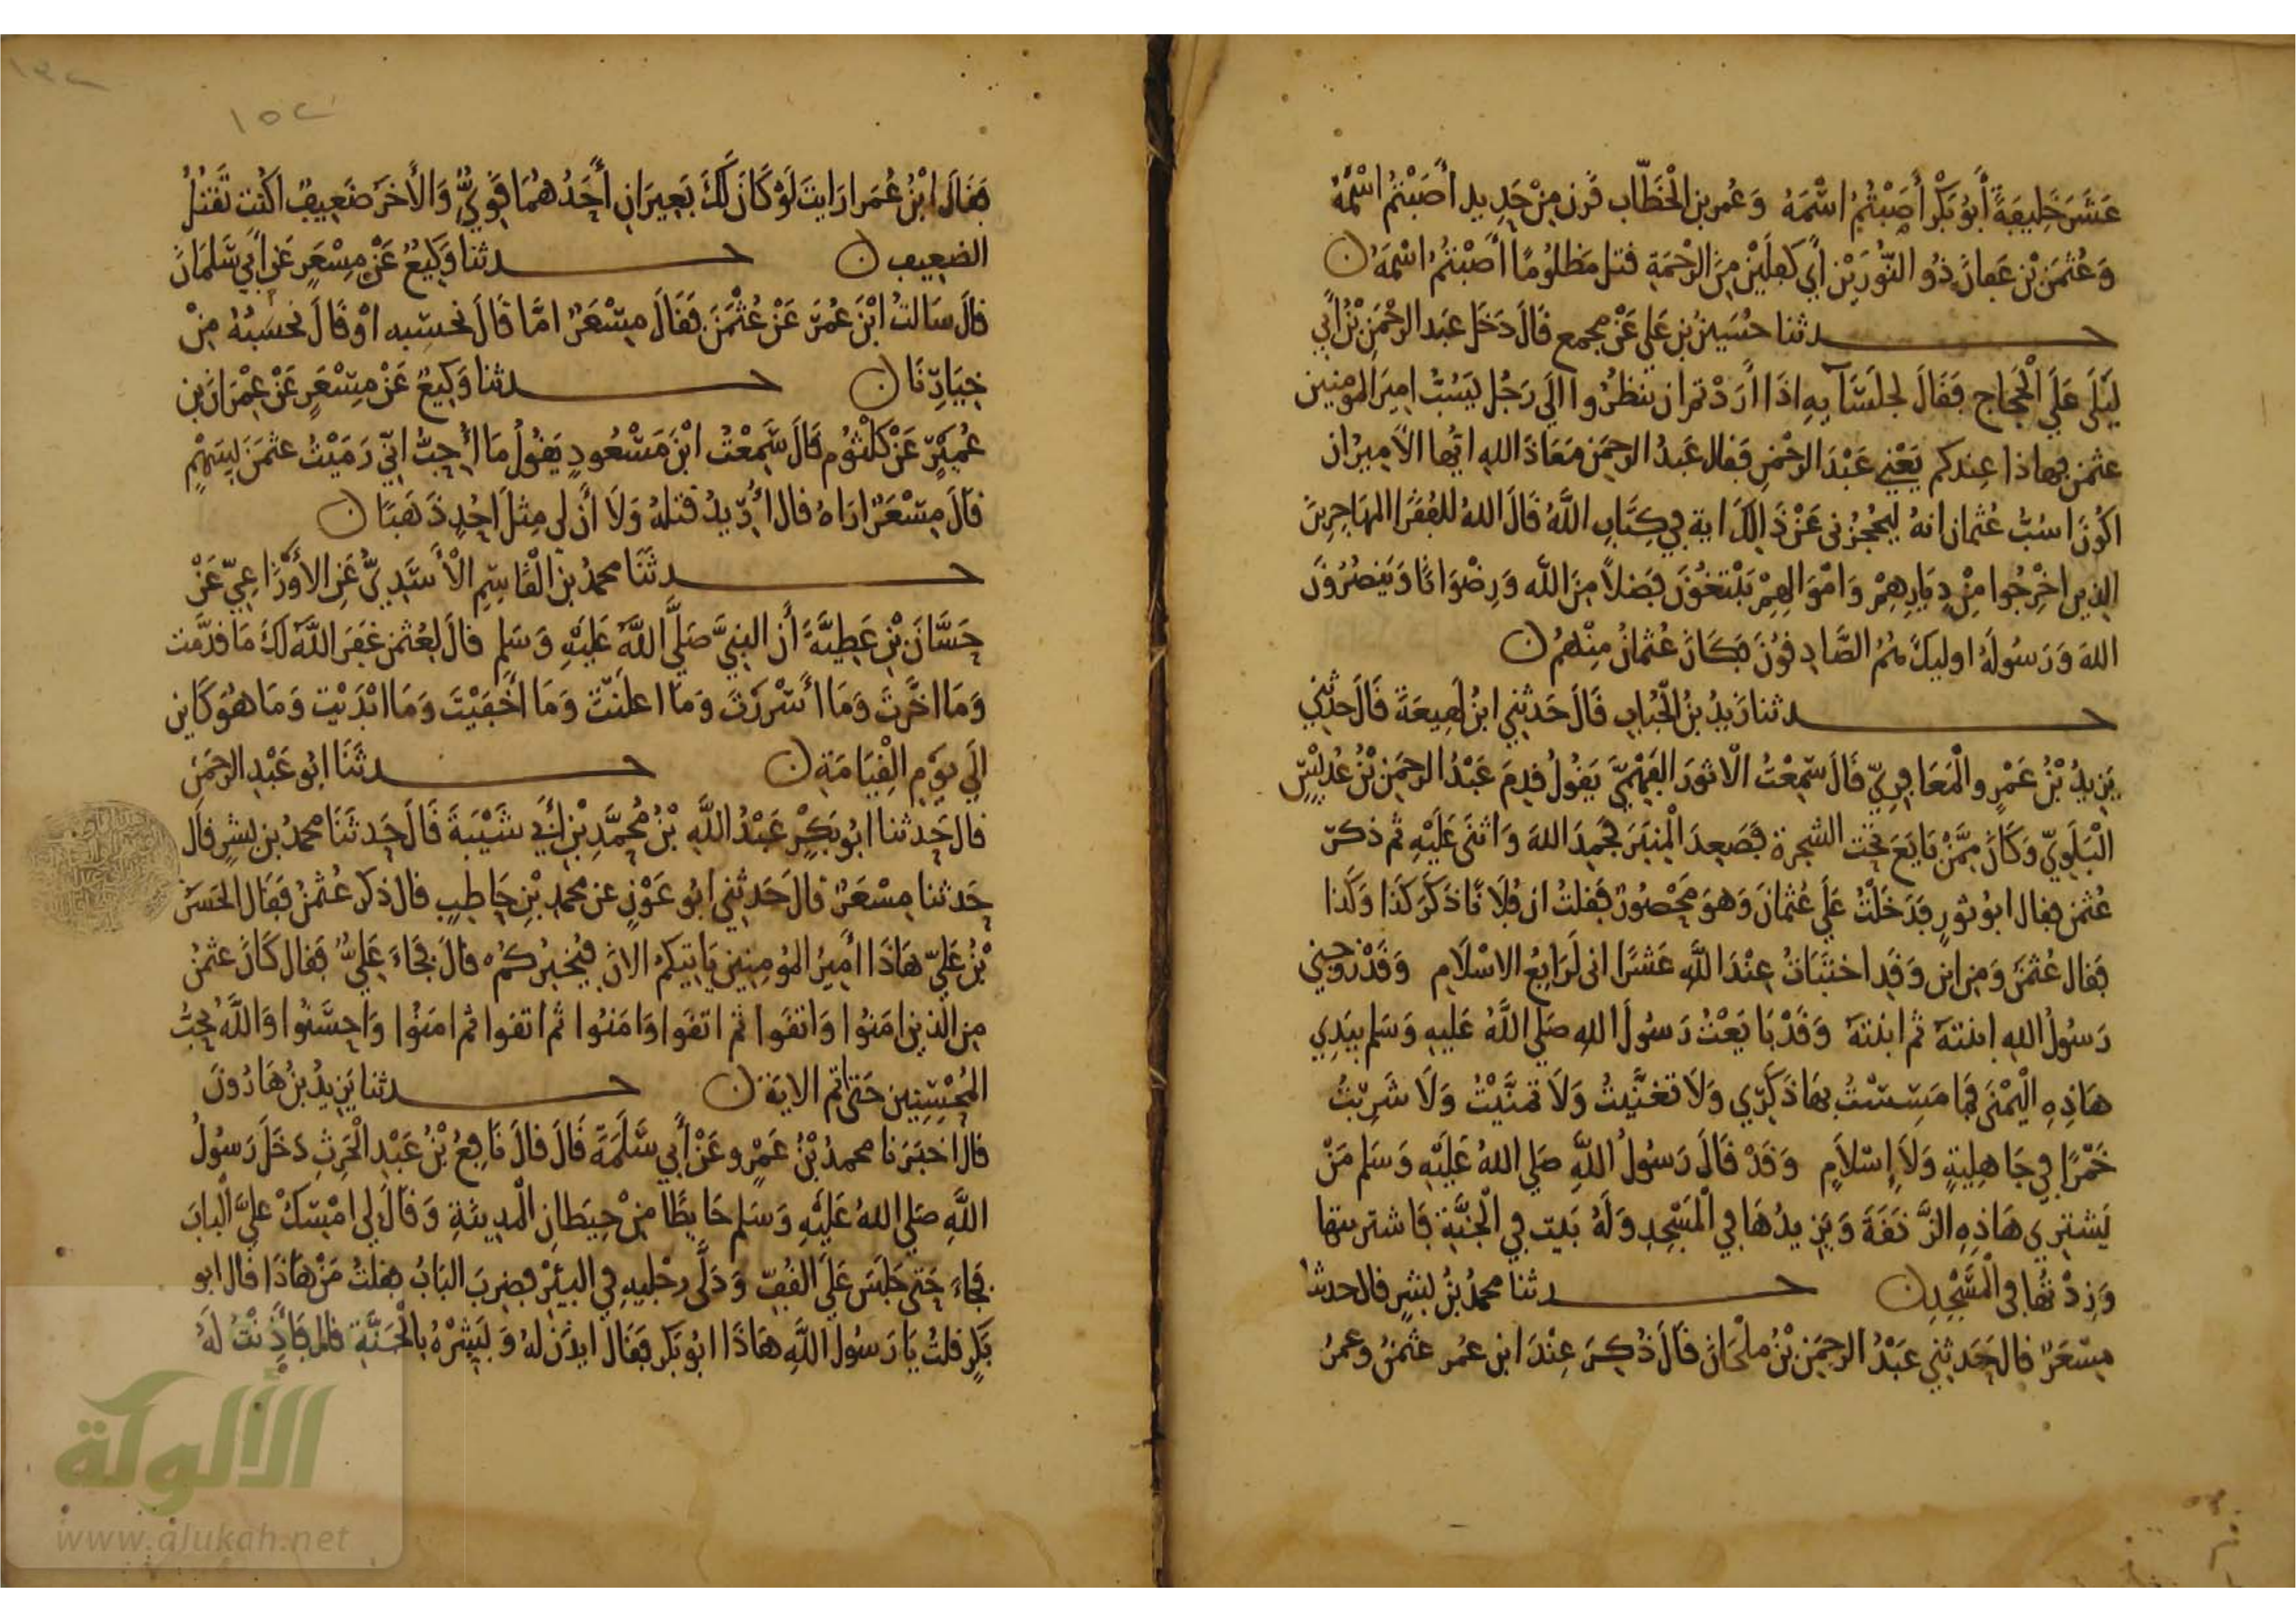 عَشَرَ خَلِيفَةً أَبُو بَكْر أَصَبْتُمُ اسْمَهُ وَعُمر بن الْخَطَّاب قَرن مِنْ حَدِيد أَصَبْتُمُ اسْمَهُ
وَعُثمن بْن عَفان ذُو النُّورَيْن أُوتي كفلين مِنَ الرَّحْمَةِ قتل مَظلُومًا أَصَبْتُمُ اسْمَهُ ن
حدثنا حُسَينُ بن عَلي عَنْ مجمع قَالَ دَخَل عَبد الرحْمَنِ بْنُ أَبي
لَيْلَى عَلَى الْحَجَّاج فَقَالَ لجلسَآيِهِ اذَا أَرَدْتم ان ينظُرُوا الَي رَجُل يَسُبُّ امِيرَ المومِنين
عثمن فهاذا عِندكم يَعْني عَبْدَ الرحْمن فقال عَبدُ الرحمَن مَعَاذَ الله ايُّها الاَميرُ ان
اكُونَ اسُبُّ عُثمان انهُ ليَحْجُزُني عَنْ ذَالِكَ اية فِي كِتَابِ اللَّهُ قَالَ اللهُ للفُقَرَا المهَاجِرِينَ
الذِين اخْرِجُوا مِنْ دِيَارِهِمْ وَامْوَالِهِمْ يَبْتَغُونَ فَضلاً مِنَ اللَّه وَرِضْوَانًا وَيَنصُرُونَ
اللهَ وَرَسُولَهُ اوليكَ هُمُ الصَّادِقُونَ فَكَانَ عُثْمَانُ مِنْهُمْ ن
حدثنا زَيدُ بنُ الْحُبَابِ قَالَ حَدثني ابنُ لَهِيعَةَ قَالَ حدثني
يَزِيدُ بْنُ عَمْرٍو الْمَعَافِرِيّ قَالَ سَمِعْتُ الاثورَ الفَهْمِيَّ يَقُولُ قدِمَ عَبْدُ الرحمَن بْنُ عُدَيْسٍ
الْبَلَوِيّ وَكَانَ مِمَّنْ بَايَعَ تَحْتَ الشجرة فَصَعِدَ الْمِنبَرَ فحَمِدَ اللهَ وَاثنَى عَلَيْهِ ثم ذكرَ
عُثمن فقال ابو ثورٍ فدَخَلتُ عَلَي عُثمَانَ وَهوَ مَحْصُورٌ فَقلتُ ان فُلَانًا ذَكَرَ كَذَا وَكَذا
فَقال عُثمنَ وَمِن اين وَقَدِ اختَبَاتُ عِنْدَ اللَّهِ عَشْرًا اني لَرَابِعُ الاسْلَامِ وَقَدْ زوجني
رَسُولُ اللهِ ابنتهُ ثم ابنتهُ وَقَدْ بَايَعْتُ رَسُولَ اللهِ صَلي اللَّهُ عَلَيهِ وَسَلم بيَدِي
هَاذِهِ الْيُمْنَى فَمَا مَسِسْتُ بهَا ذَكَرِي وَلَا تَغَنَّيتُ وَلَا تمَنَّيْتُ وَلَا شَرِبْتُ
خَمْرًا فِي جَاهِلِيَةٍ وَلَا إِسْلاَمٍ وَقَدْ قَالَ رَسُولُ اللَّهِ صَلي اللهُ عَلَيْهِ وَسَلم مَنْ
يَشتِرِي هَاذِهِ الزَّنَقَةَ وَيَزِيدُهَا فِي الْمَسْجِدِ وَلَهُ بَيت فِي الْجَنَّةِ فَاشتريتها
وَزِدْتُهَا في الْمَسْجِدِ ن حدثنا محمدُ بْنُ بشرٍ قال حدثنا
مِسْعَرٌ قال حَدثني عَبْدُ الرحمَن بْنُ ملْحَانَ قَالَ ذُكِرَ عِنْدَ ابن عُمر عثمنُ وعمرُ
١٥٢
فَقَالَ ابْنُ عُمَرَ ارَايتَ لَوْ كَانَ لَكَ بَعِيرَانِ أَحَدُهُمَا قَوِيٌّ وَالْأَخَرُ ضَعِيفٌ اكُنْتَ تَقتُلُ
الضعِيف ن حدثنا وَكِيعٌ عَنْ مِسْعَرٍ عَنْ أَبي سَلمَانَ
قالَ سَالتُ ابْنَ عُمَرَ عَنْ عُثْمَنَ فَقَالَ مِسْعَرٌ امَّا قَالَ نحسبه اوْ قَالَ نحْسَبُهُ مِنْ
خِيَارِنَا ن حدثنا وَكِيعٌ عَنْ مِسْعَرٍ عَنْ عِمْرَان بن
عُمَيْرٍ عَنْ كلْثُوم قَالَ سَمِعْتُ ابْنَ مَسْعُودٍ يَقُولُ مَا أُحِبُّ انّي رَمَيْتُ عثمَنَ بِسَهْمٍ
قالَ مِسْعَرٌ ارَاهُ قال أُرِيدُ قتلهُ وَلَا أَنَّ لي مِثلَ احُدٍ ذَهَبًا ن
حدثَنَا محمدُ بنُ الْقَاسِمِ الْأَسَدِيُّ عَنِ الأَوْزَاعِيّ عَنْ
حَسَّانَ بْنِ عَطِيَّةَ أَن النبيَّ صَلَّي اللَّهُ عَلَيْهِ وَسَلم قالَ لعُثمن غفَرَ اللَّهُ لَكَ مَا قدَّمت
وَمَا اخَّرتَ وَمَا أَسْرَرْتَ وَمَا اعلَنْتَ وَمَا اخْفَيْتَ وَمَا ابْدَيْت وَمَا هُوَ كَاين
الَي يَوْمِ القِيَامَةِ ن حدثَنَا ابُو عَبْدِ الرحْمَن
قال حَدثنا ابُو بَكْرٍ عَبْدُ اللَّهِ بْنُ مُحَمَّدِ بْنِ أَبِي شَيْبَةَ قَالَ حَدثَنَا محمدُ بن بشرٍ قالَ
حَدثنا مِسْعَرٌ قالَ حَدثني ابُو عَوْنٍ عن محمدِ بْنِ حَاطِبٍ قال ذكر عُثمنُ فَقَال الحَسَنُ
بْنُ عَلِيّ هَاذَا أَمِيرُ المؤمِنِين يَاتيكم الانَ فيُخبِرُكمْ قالَ فجَاءَ عَلِيٌّ فَقال كَانَ عثمنُ
مِن الذين امَنُوا وَاتقَوا ثم اتقَوا وَامَنُوا ثم اتقوا ثم امَنوُا وَاحسَنُوا وَاللَّهُ يحِبُّ
المُحْسِنِين حَتى اتم الايَة ن حدثنا يَزِيدُ بنُ هَارُونَ
قالَ اخبَرَنا محمدُ بْنُ عَمْرٍو عَنْ أَبِي سَلَمَةَ قَالَ قالَ نَافِعُ بْنُ عَبْدِ الْحَرِثِ دَخَلَ رَسُولُ
اللَّهِ صَلي اللهُ عَلَيْهِ وَسَلم حَايِطًا مِنْ حِيَطانِ الْمَدِينَةِ وَقَالَ لي امْسِكْ عَلَيَّ الْبابَ
فجَاءَ حَتى جَلَسَ عَلَى القُفِّ وَدَلَّى رجْلَيهِ فِي البِيْرِ فضرِبَ البَابُ فقلتُ مَنْ هَاذَا قال ابو
بَكرٍ قلتُ يَا رَسُولَ اللَّهِ هَاذَا ابُو بَكر فَقَالَ ايذَن لهُ وَبَشِّرْهُ بالْجَنَّةِ قالَ فَأَذِنْتُ لَهُ
الألوكة
www.alukah.net